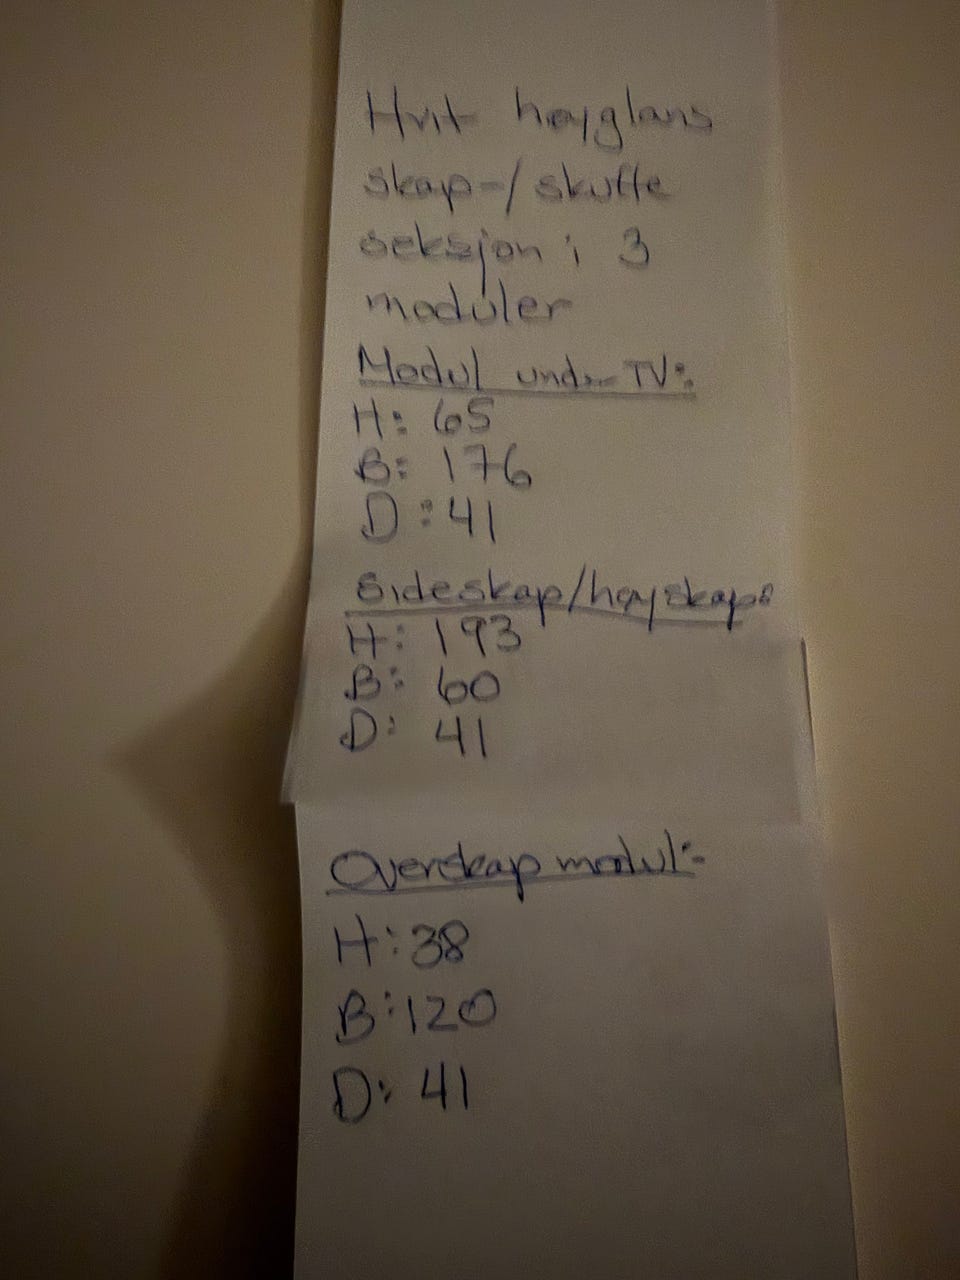 Hvit høyglans
skap-/skuffe
seksjon i 3
moduler
Modul under TV:
H: 65
B: 176
D: 41
Sideskap/høyskap:
H: 193
B: 60
D: 41
Overskap modul:
H: 38
B: 120
D: 41